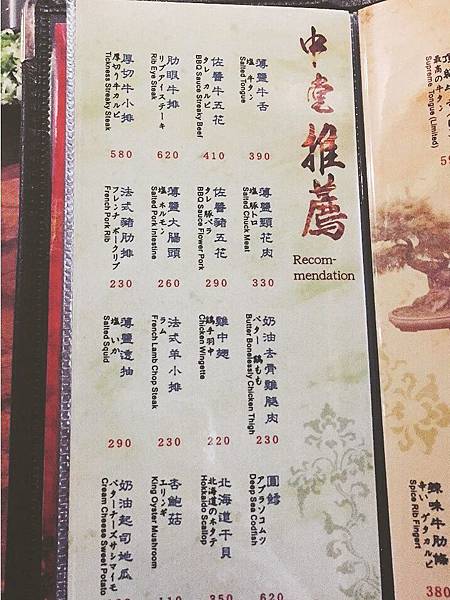 中堂推薦
Recom-
mendation
薄鹽牛舌
塩 牛タン
Salted Tongue
390
佐醬牛五花
タレ カルビ
BBQ Sauce Streaky Beef
410
肋眼牛排
リブアイステーキ
Rib Eye Steak
620
厚切牛小排
厚切り牛カルビ
Tickness Streaky Steak
580
薄鹽頸花肉
塩 豚トロ
Salted Chuck Meat
330
佐醬豬五花
タレ 豚バラ
BBQ Sauce Flower Pork
290
薄鹽大腸頭
塩 ホルモン
Salted Pork Intestine
260
法式豬肋排
フレンチ ポークリブ
French Pork Rib
230
奶油去骨雞腿肉
バター 鶏もも
Butter Bonelessly Chicken Thigh
230
雞中翅
鶏手羽中
Chicken Wingette
220
法式羊小排
ラム
French Lamb Chop Steak
230
薄鹽透抽
塩 いか
Salted Squid
290
圓鱈
アブラソコムツ
Deep Sea Codfish
620
北海道干貝
北海道のホタテ
Hokkaido Scallop
350
杏鮑菇
エリンギ
King Oyster Mushroom
110
奶油起司地瓜
バターチーズサツマイモ
Cream Cheese Sweet Potato
最高の牛タン
Supreme Tongue (Limited)
辣味牛肋條
辛い ゲタカルビ
Spice Rib Fingert
380